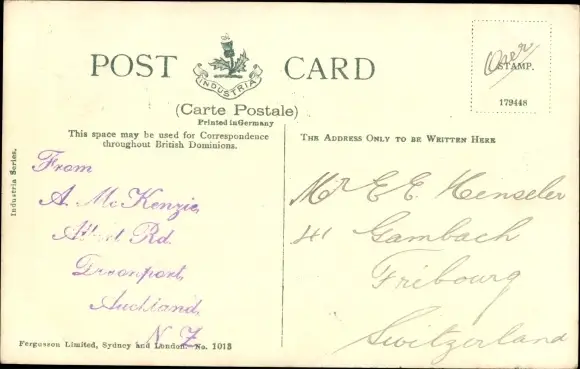 POST CARD
INDUSTRIA
(Carte Postale)
Printed in Germany
This space may be used for Correspondence
throughout British Dominions.
THE ADDRESS ONLY TO BE WRITTEN HERE
Over
STAMP.
179448
Industria Series.
From
A. McKenzie
Albert Rd.
Devonport,
Auckland,
N Z
Mr E E. Henseler
41 Gambach
Fribourg
Switzerland
Fergusson Limited, Sydney and London. No. 1013